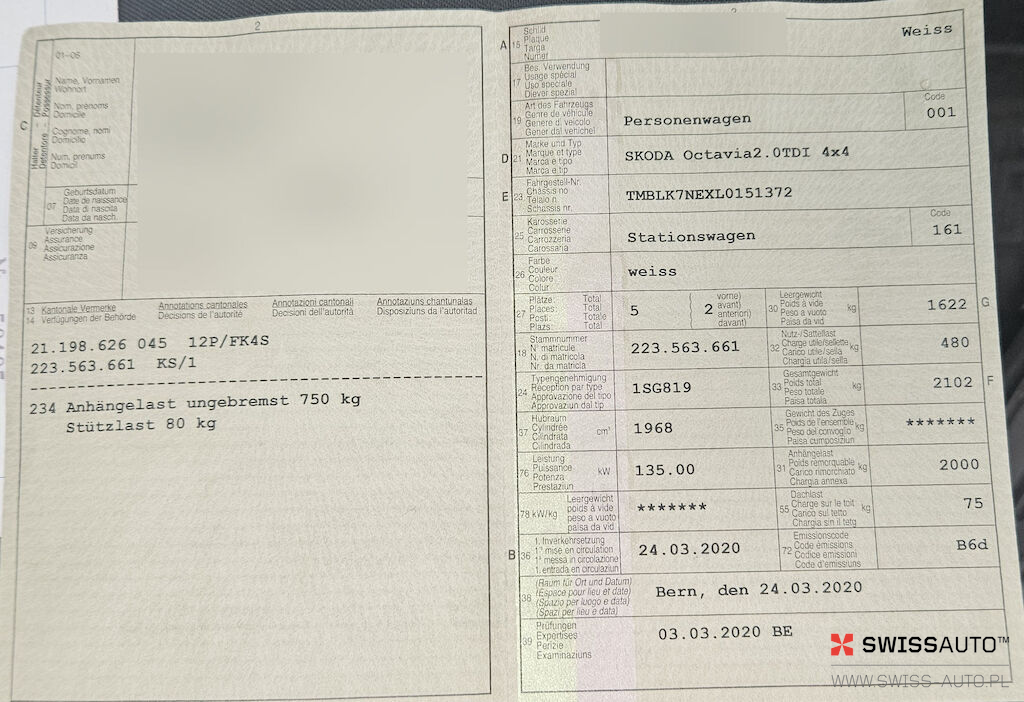 2
01-06
Name, Vornamen
Wohnort
Nom, prénoms
Domicile
Cognome, nomi
Domicilio
Num, prenums
Domicil
C
Halter - Détenteur
Detentore - Possessur
07
Geburtsdatum
Date de naissance
Data di nascita
Data da nasch.
09
Versicherung
Assurance
Assicurazione
Assicuranza
13 Kantonale Vermerke
14 Verfügungen der Behörde
Annotations cantonales
Décisions de l'autorité
Annotazioni cantonali
Decisioni dell'autorità
Annotaziuns chantunalas
Disposiziuns da l'autoritad
21.198.626 045 12P/FK4S
223.563.661 KS/1
234 Anhängelast ungebremst 750 kg
Stützlast 80 kg
A 15
Schild
Plaque
Targa
Numer
Weiss
17
Bes. Verwendung
Usage spécial
Uso speciale
Diever spezial
19
Art des Fahrzeugs
Genre de véhicule
Genere di veicolo
Gener dal vehichel
Personenwagen
Code
001
D 21
Marke und Typ
Marque et type
Marca e tipo
Marca e tip
SKODA Octavia2.0TDI 4x4
E 23
Fahrgestell-Nr.
Châssis no
Telaio n.
Schassis nr.
TMBLK7NEXL0151372
25
Karosserie
Carrosserie
Carrozzeria
Carossaria
Stationswagen
Code
161
26
Farbe
Couleur
Colore
Colur
weiss
27
Plätze: Total
Places: Total
Posti: Totale
Plazs: Total
5
( vorne)
( 2 avant)
( anteriori)
( davant)
30
Leergewicht
Poids à vide
Peso a vuoto
Paisa da vid
kg
1622
G
18
Stammnummer
N° matricule
N. di matricola
Nr. da matricla
223.563.661
32
Nutz-/Sattellast
Charge utile/sellette
Carico utile/sella
Chargia utila/sella
kg
480
24
Typengenehmigung
Réception par type
Approvazione del tipo
Approvaziun dal tip
1SG819
33
Gesamtgewicht
Poids total
Peso totale
Paisa totala
kg
2102
F
37
Hubraum
Cylindrée
Cilindrata
Cilindrada
cm³
1968
35
Gewicht des Zuges
Poids de l'ensemble
Peso del convoglio
Paisa cumposiziun
kg
*******
76
Leistung
Puissance
Potenza
Prestaziun
kW
135.00
31
Anhängelast
Poids remorquable
Carico rimorchiato
Chargia annexa
kg
2000
78 kW/kg
Leergewicht
poids à vide
peso a vuoto
paisa da vid
*******
55
Dachlast
Charge sur le toit
Carico sul tetto
Chargia sin il tetg
kg
75
B 36
1. Inverkehrsetzung
1re mise en circulation
1a messa in circolazione
1. entrada en circulaziun
24.03.2020
72
Emissionscode
Code émissions
Codice emissioni
Code d'emissiuns
B6d
38
(Raum für Ort und Datum)
(Espace pour lieu et date)
(Spazio per luogo e data)
(Spazi per lieu e data)
Bern, den 24.03.2020
39
Prüfungen
Expertises
Perizie
Examinaziuns
03.03.2020 BE
SWISSAUTO™
WWW.SWISS-AUTO.PL